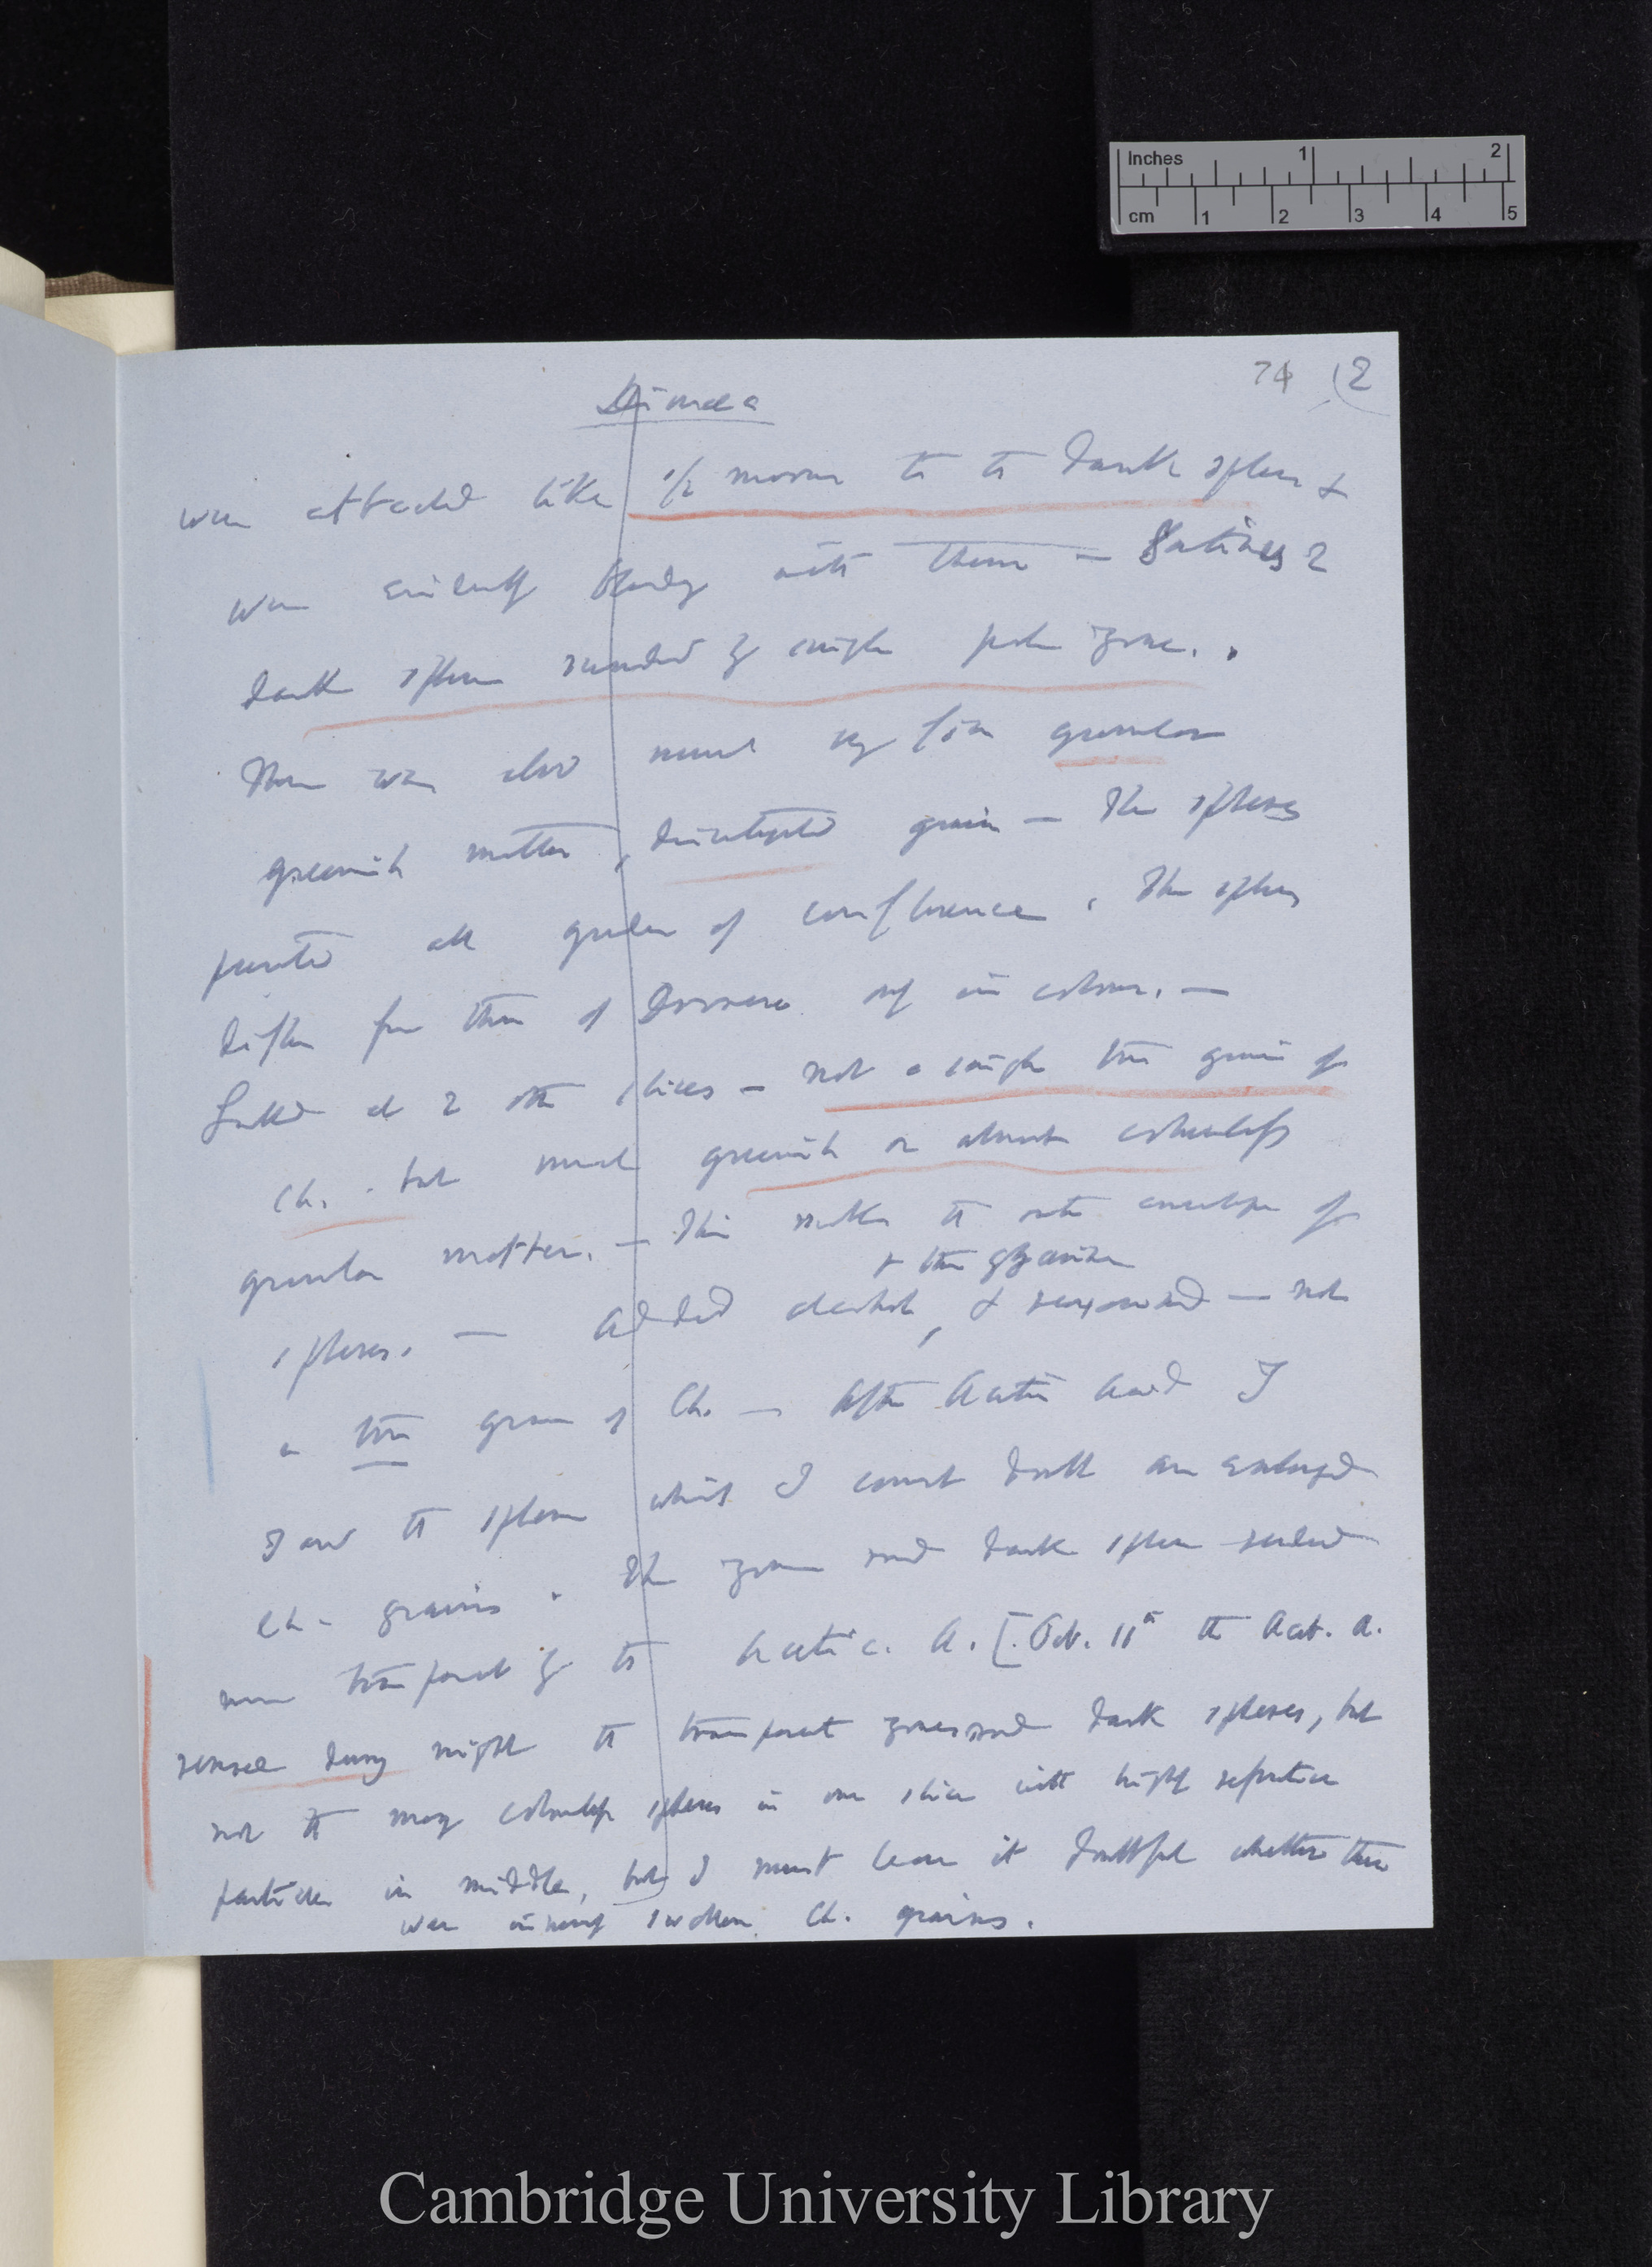 Inches 1 2
cm 1 2 3 4 5
74 (2
Dionaea
were attached like 1/2 moons to the dark spheres &
were evidently blending with them — Sometimes 2
dark spheres surrounded by single pale zone.
There was also much very fine granular
greenish matter, disintegrated grains — The spheres
presented all grades of confluence. The spheres
differ from those of Drosera only in colour. —
Looked at 2 other slices — not a single true grain of
Ch. but much greenish or almost colourless
granular matter. — This makes the outer envelope of
& then glycerine
spheres. — Added alcohol, & reexamined — not
a true grain of Ch. — After Acetic Acid I
saw the spheres which I cannot doubt are enlarged
Ch. grains. The zones round dark spheres rendered
more transparent by the Acetic. A. [Oct. 11th the Acet. A.
removed during night the transparent zones round dark spheres, but
not the many colourless spheres in one slice with highly refractive
particles in middle, but I must leave it doubtful whether these
were immensely swollen Ch. grains.
Cambridge University Library